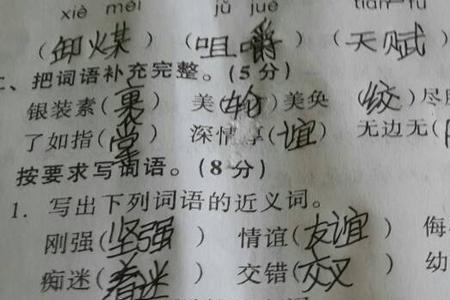 xiè méi jǔ jué
(卸煤) (咀嚼) (天赋)
、把词语补充完整。(5分)
银装素(裹) 美(轮)美奂 (绞)尽
了如指(掌) 深情厚(谊) 无边无(
按要求写词语。(8分)
1. 写出下列词语的近义词。
刚强(坚强) 情谊(友谊) 侮
痴迷(着迷) 交错(交叉) 幼